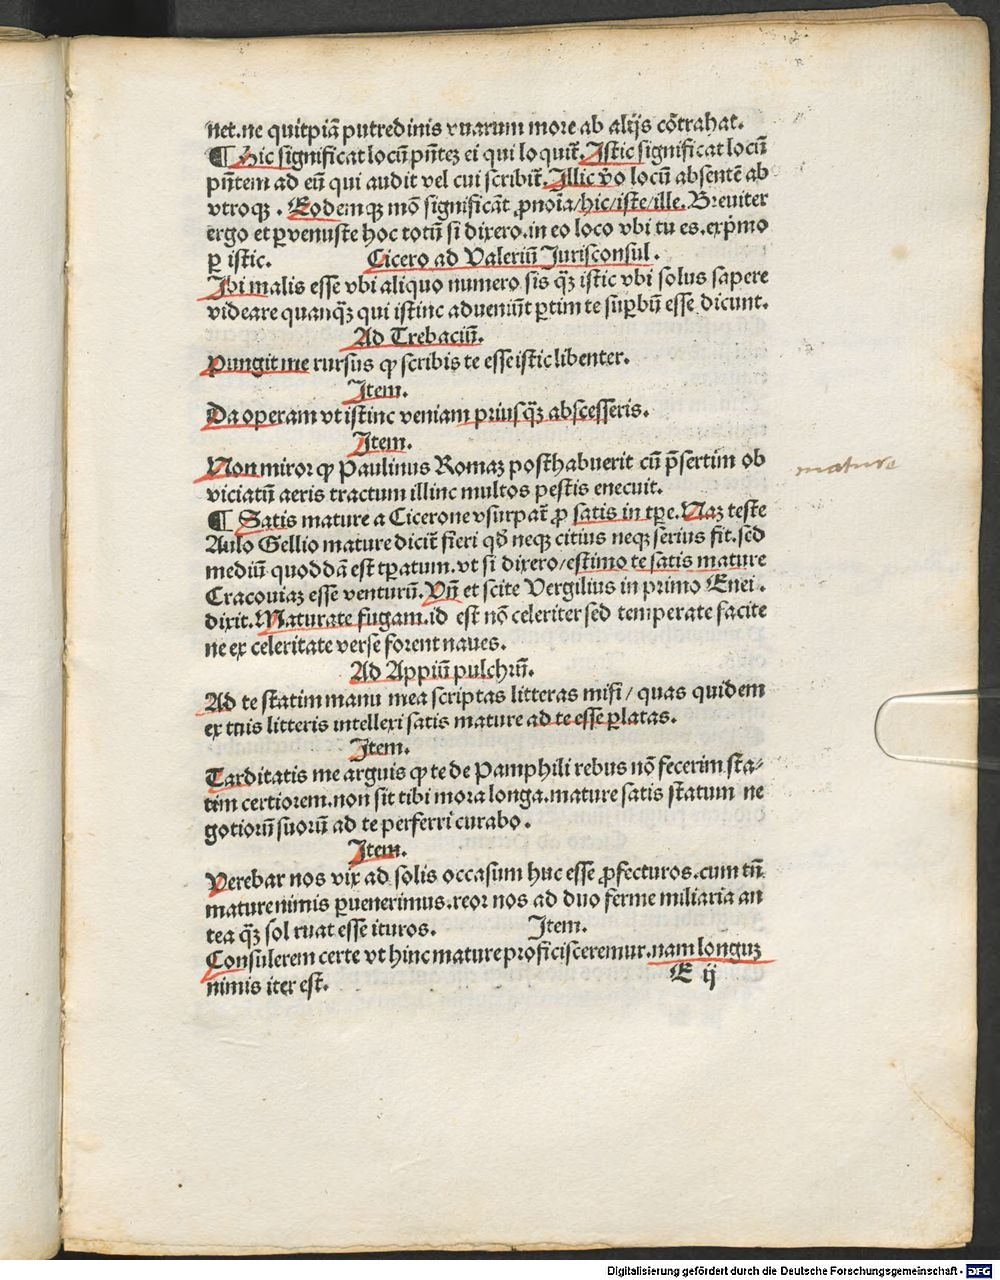 net.ne quitpiã putredinis vuarum more ab alijs cõtrahat.
¶ Hic significat locũ pñteꝫ ei qui loquit̃. Istic significat locũ
pñtem ad eũ qui audit vel cui scribit̃. Illic ṽo locũ absentẽ ab
vtroqꝫ . Eodemqꝫ mõ significãt ꝓnoĩa/hic/iste/ille. Breuiter
ergo et ꝑvenuste hoc totũ si dixero.in eo loco vbi tu es.exp̃mo
ꝑ istic. Cicero ad Valeriũ Jurisconsul.
Ibi malis esse vbi aliquo numero sis q̃ꝫ istic vbi solus sapere
videare quanq̃ꝫ qui istinc adueniũt ꝑtim te suꝑbũ esse dicunt.
Ad Trebaciũ.
Pungit me rursus ꝙ scribis te esse istic libenter.
Item.
Da operam vt istinc veniam priusq̃ꝫ abscesseris.
Item.
Non miror ꝙ Paulinus Romaꝫ posthabuerit cũ p̃sertim ob
viciatũ aeris tractum illinc multos pestis enecuit.
mature
¶ Satis mature a Cicerone vsurpat̃ ꝓ satis in tꝑe. Naꝫ teste
Aulo Gellio mature dicit̃ fieri qđ neqꝫ citius neqꝫ serius fit.sed
mediũ quoddã est tꝑatum.vt si dixero/estimo te satis mature
Cracouiaꝫ esse venturũ. Vñ et scite Vergilius in primo Enei.
dixit. Maturate fugam.id est nõ celeriter sed temperate facite
ne ex celeritate verse forent naues.
Ad Appiũ pulchrũ.
Ad te statim manu mea scriptas litteras misi/ quas quidem
ex tuis litteris intellexi satis mature ad te esse ꝑlatas.
Item.
Tarditatis me arguis ꝙ te de Pamphili rebus nõ fecerim sta-
tim certiorem.non sit tibi mora longa.mature satis statum ne
gotiorũ suorũ ad te perferri curabo.
Item.
Verebar nos vix ad solis occasum huc esse ꝓfecturos.cum tñ
mature nimis ꝑuenerimus.reor nos ad duo ferme miliaria an
tea q̃ꝫ sol ruat esse ituros. Item.
Consulerem certe vt hinc mature proficisceremur.nam longuꝫ
nimis iter est.
E ij
Digitalisierung gefördert durch die Deutsche Forschungsgemeinschaft - DFG